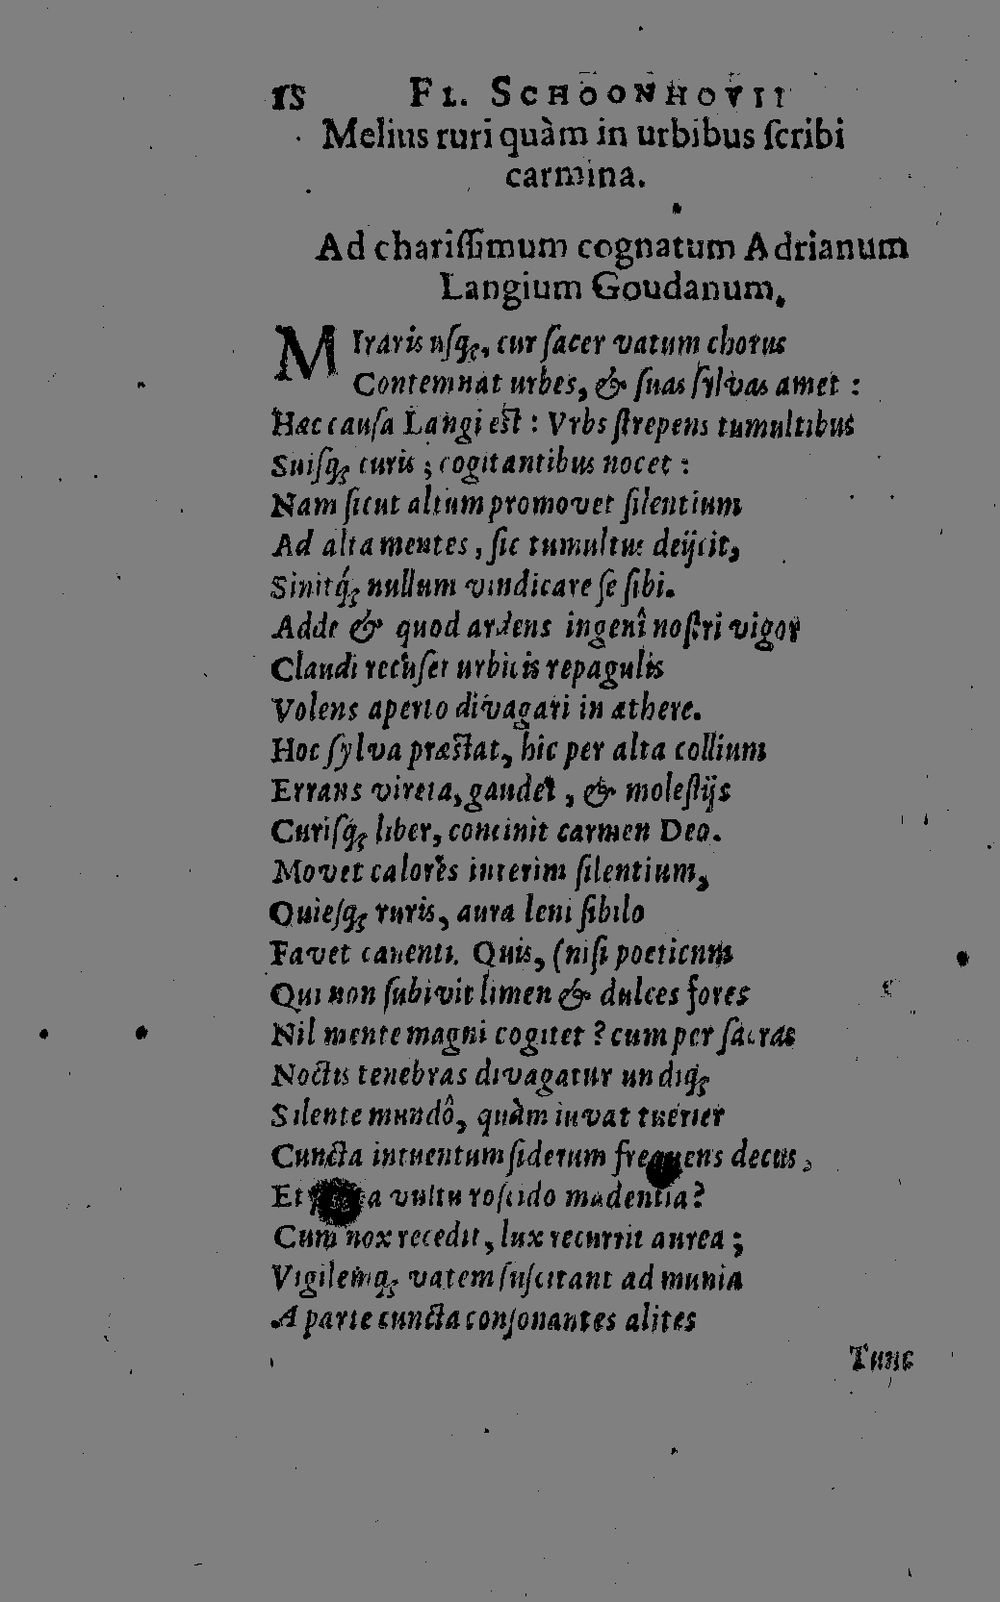 18 FL. SCHOONHOVII
Melius ruri quàm in urbibus ſcribi
carmina.
Ad chariſſimum cognatum Adrianum
Langium Goudanum.
MIraris uſq;, cur ſacer vatum chorus
Contemnat urbes, & ſuas ſylvas amet :
Hæc cauſa Langi eſt : Vrbs ſtrepens tumultibus
Suiſq; curis ; cogitantibus nocet :
Nam ſicut altum promovet ſilentium
Ad alta mentes, ſic tumultus deijcit,
Sinitq́; nullum vindicare ſe ſibi.
Adde & quod ardens ingenî noſtri vigor
Claudi recuſet urbicis repagulis
Volens aperto divagari in æthere.
Hoc ſylva præſtat, hic per alta collium
Errans vireta, gaudet, & moleſtijs
Curiſq́; liber, concinit carmen Deo.
Movet calores interim ſilentium,
Quieſq; ruris, aura leni ſibilo
Favet canenti. Quis, (niſi poeticum
Qui non ſubivit limen & dulces fores
Nil mente magni cogitet ? cum per ſacras
Noctis tenebras divagatur undiq́;
Silente mundô, quàm iuvat tuerier
Cuncta intuentum ſiderum frequens decus,
Et vultu roſcido madentia?
Cum nox recedit, lux recurrit aurea ;
Vigilemq; vatem ſuſcitant ad munia
A parte cuncta conſonantes alites
Tunc